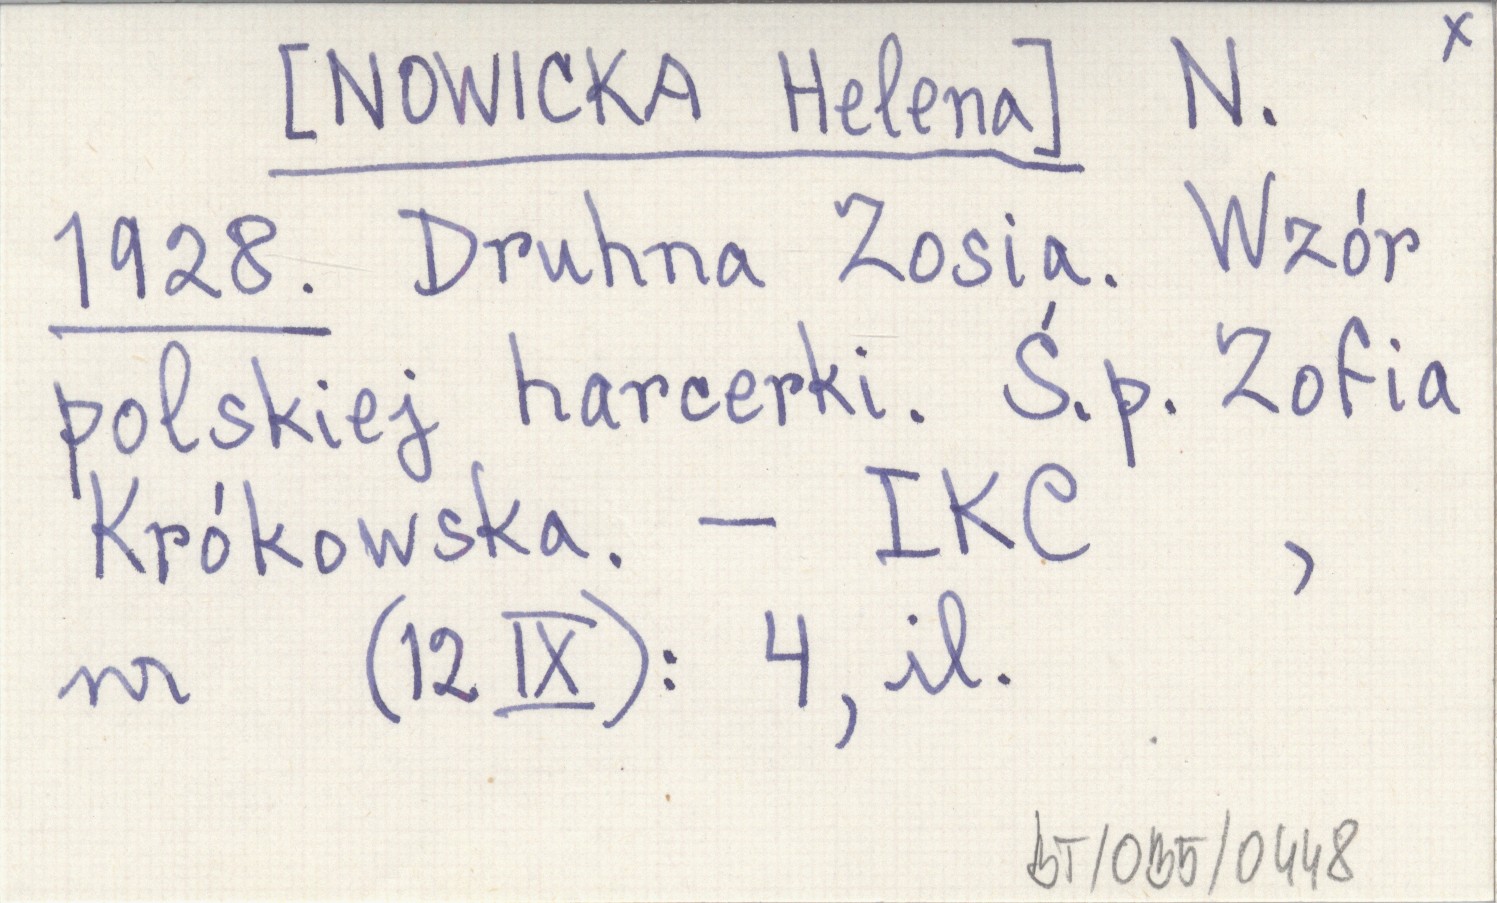 x
[NOWICKA Helena] N.
1928. Druhna Zosia. Wzór
polskiej harcerki. Ś.p. Zofia
Krókowska. — IKC ,
nr (12 IX): 4, il.
BT/OB5/0448